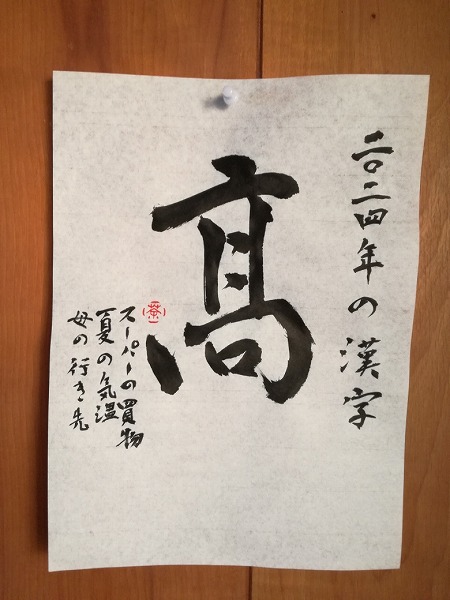 二〇二四年の漢字
髙
スーパーの買物
夏の気温
母の行き先